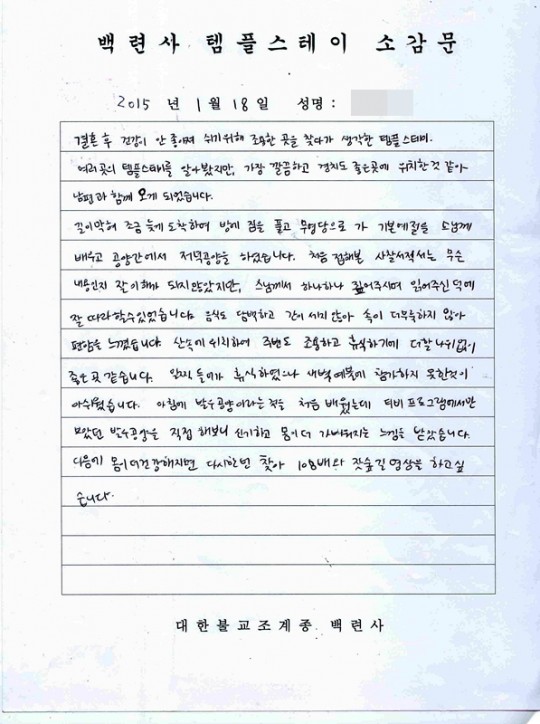 백련사 템플스테이 소감문
2015 년 1 월 18 일 성명 :
결혼 후 건강이 안 좋아져 쉬기위해 조용한 곳을 찾다가 생각한 템플스테이.
여러곳의 템플스테이를 알아봤지만, 가장 깔끔하고 경치도 좋은곳에 위치한것 같아
남편과 함께 오게 되었습니다.
길이막혀 조금 늦게 도착하여 방에 짐을 풀고 무명당으로 가 기본예절을 스님께
배우고 공양간에서 저녁공양을 하였습니다. 처음 접해본 사찰서적서는 무슨
내용인지 잘 이해가 되지않았지만, 스님께서 하나하나 짚어주시며 읽어주신 덕에
잘 따라할수있었습니다. 음식도 담백하고 간이 세지 않아 속이 더부룩하지 않아
편안함을 느꼈습니다. 산속에 위치하여 주변도 조용하고 휴식하기에 더할 나위없이
좋은곳 같습니다. 일찍 들어가 휴식하였으나 새벽예불에 참가하지 못한것이
아쉬웠습니다. 아침에 발우공양이라는것을 처음 배웠는데 티비 프로그램에서만
보았던 발우공양을 직접 해보니 신기하고 몸이 더 가벼워지는 느낌을 받았습니다.
다음에 몸이 더 건강해지면 다시한번 찾아 108배와 잣숲길 명상을 하고싶
습니다.
대한불교조계종 백련사